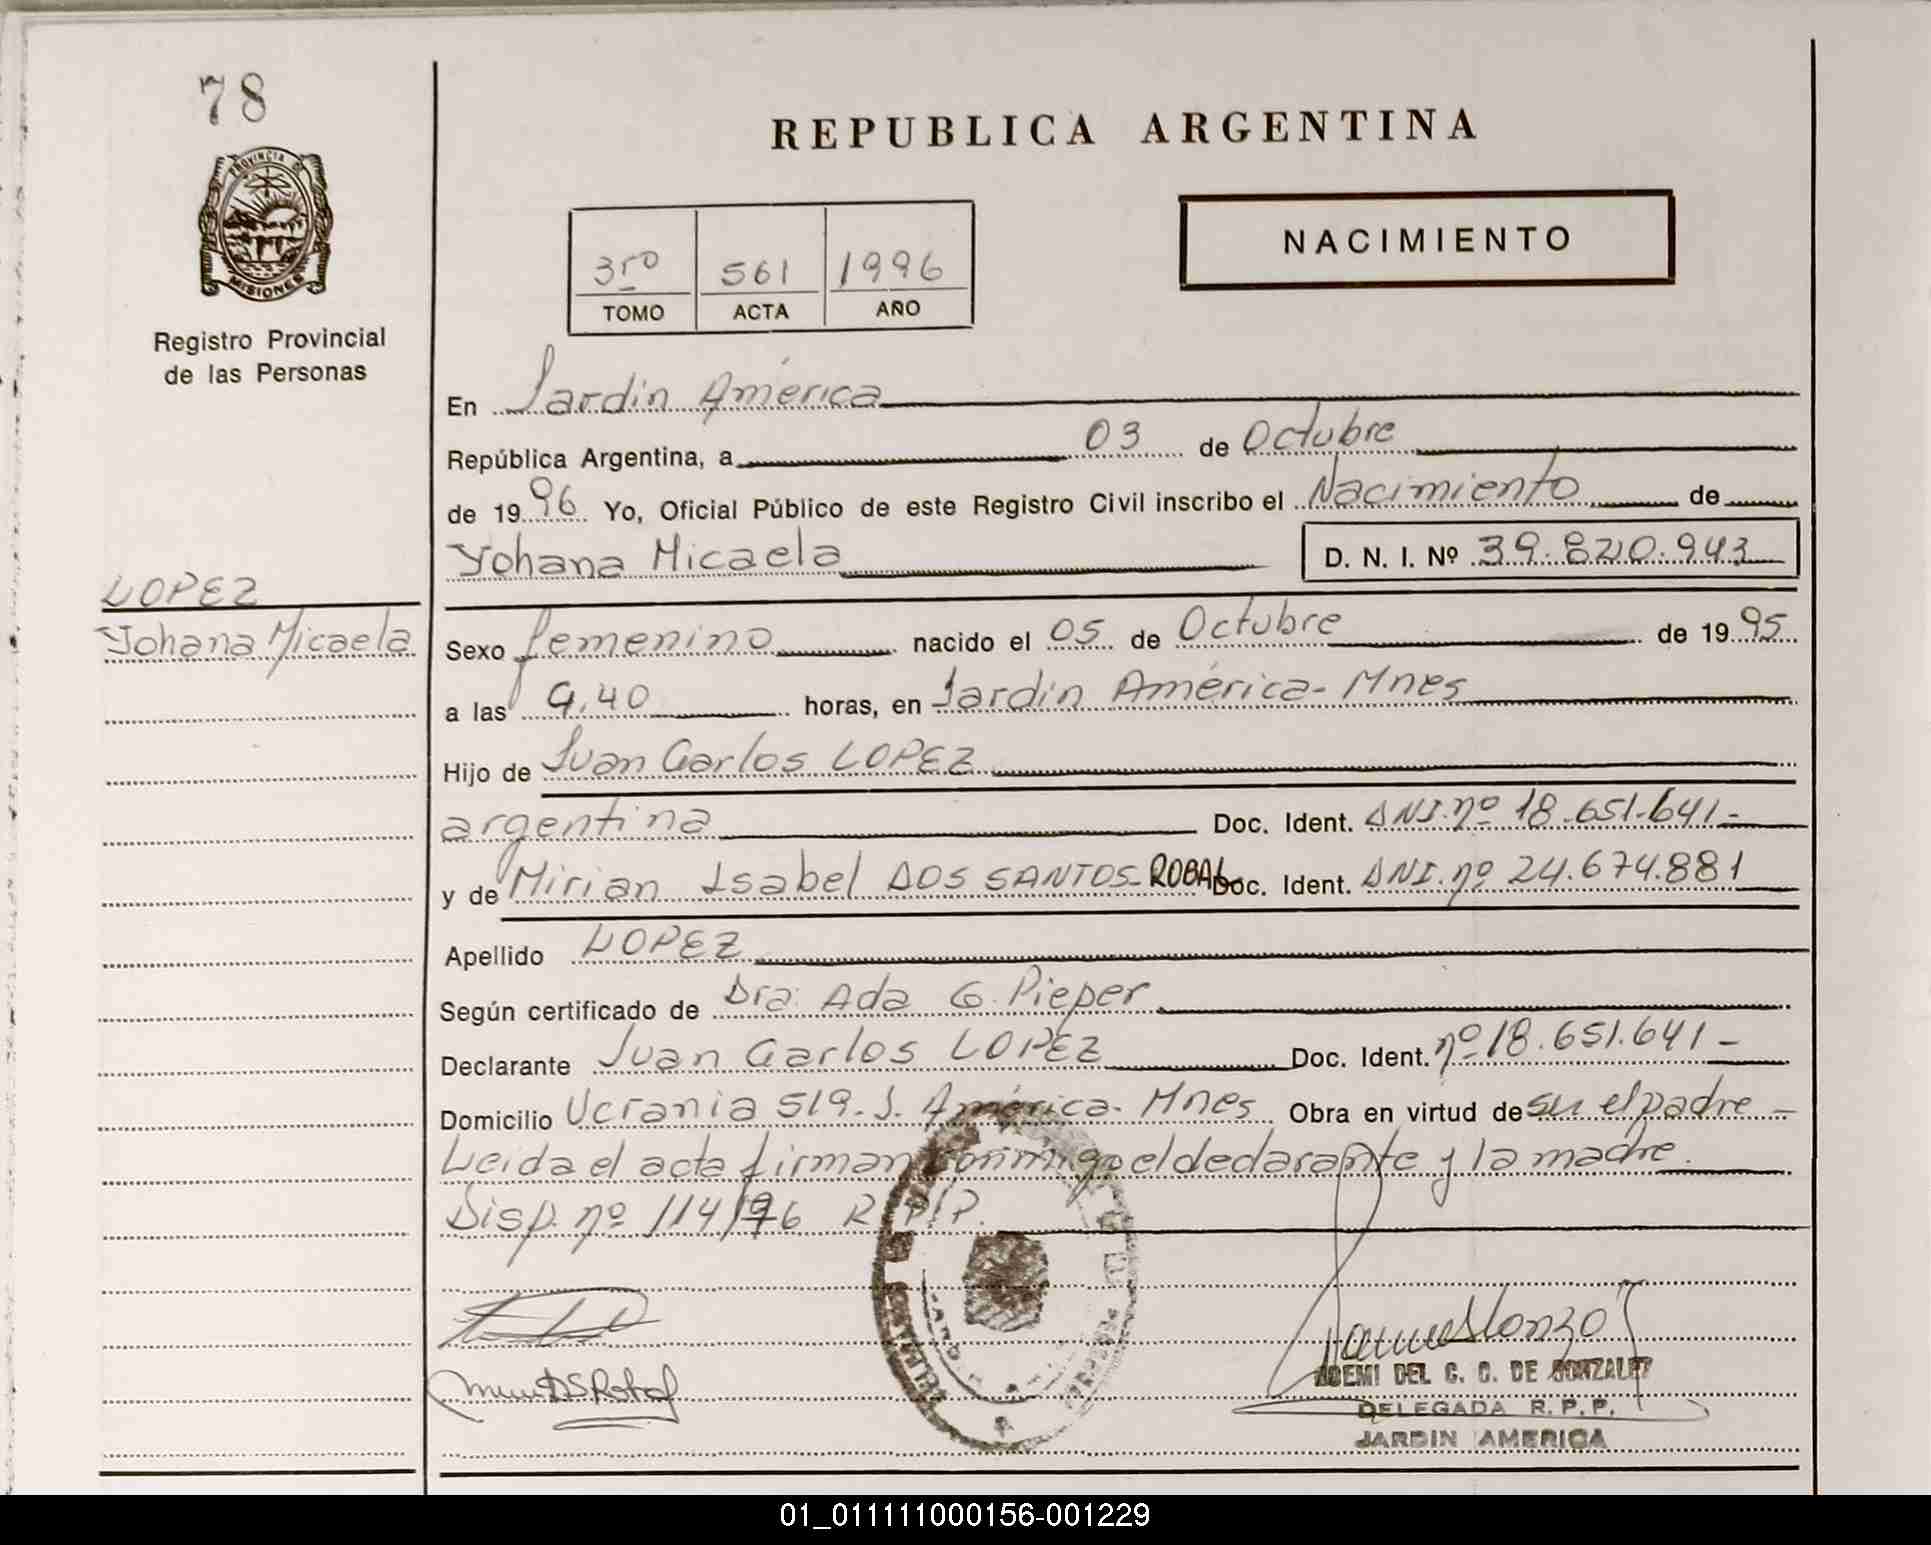 78
PROVINCIA D
MISIONES
Registro Provincial
de las Personas
LOPEZ
Yohana Micaela
REPUBLICA ARGENTINA
NACIMIENTO
3ro 561 1996
TOMO ACTA AÑO
En Jardin América
República Argentina, a 03 de Octubre
de 1996 Yo, Oficial Público de este Registro Civil inscribo el Nacimiento de
Yohana Micaela D. N. I. Nº 39.820.943
Sexo femenino nacido el 05 de Octubre de 1995
a las 9,40 horas, en Jardin América- Mnes
Hijo de Juan Carlos LOPEZ
argentina Doc. Ident. DNI.nº 18.651.641-
y de Mirian Isabel DOS SANTOS- ROBAL Doc. Ident. DNI.nº 24.674.881
Apellido LOPEZ
Según certificado de Dra. Ada G. Pieper
Declarante Juan Carlos LOPEZ Doc. Ident. nº 18.651.641-
Domicilio Ucrania 519. J. América- Mnes Obra en virtud de su el padre-
Leida el acta firman conmigo el declarante y la madre.
Disp. nº 114/96 R.P.P.
DEL C. C. DE GONZALEZ
DELEGADA R.P.P.
JARDIN AMERICA
01_011111000156-001229